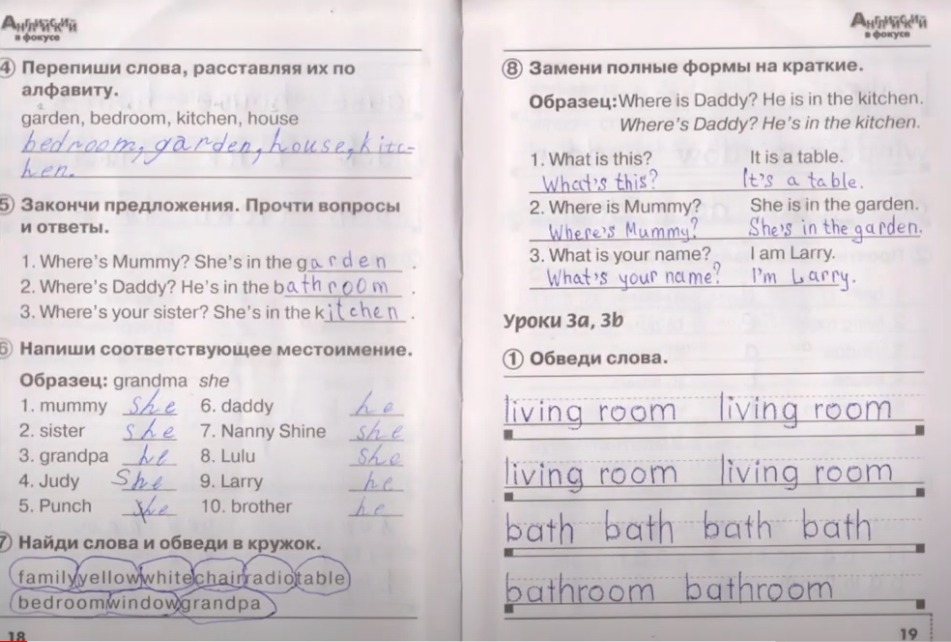 Английский
в фокусе
4 Перепиши слова, расставляя их по
алфавиту.
garden, bedroom, kitchen, house
bedroom, garden, house, kitc-
hen.
5 Закончи предложения. Прочти вопросы
и ответы.
1. Where's Mummy? She's in the garden.
2. Where's Daddy? He's in the bathroom.
3. Where's your sister? She's in the kitchen.
6 Напиши соответствующее местоимение.
Образец: grandma she
1. mummy she 6. daddy he
2. sister she 7. Nanny Shine she
3. grandpa he 8. Lulu she
4. Judy She 9. Larry he
5. Punch 10. brother he
7 Найди слова и обведи в кружок.
familyyellowwhitechairradiotable
bedroomwindowgrandpa
18
Английский
в фокусе
8 Замени полные формы на краткие.
Образец: Where is Daddy? He is in the kitchen.
Where's Daddy? He's in the kitchen.
1. What is this? It is a table.
What's this? It's a table.
2. Where is Mummy? She is in the garden.
Where's Mummy? She's in the garden.
3. What is your name? I am Larry.
What's your name? I'm Larry.
Уроки 3a, 3b
1 Обведи слова.
living room living room
living room living room
bath bath bath bath
bathroom bathroom
19